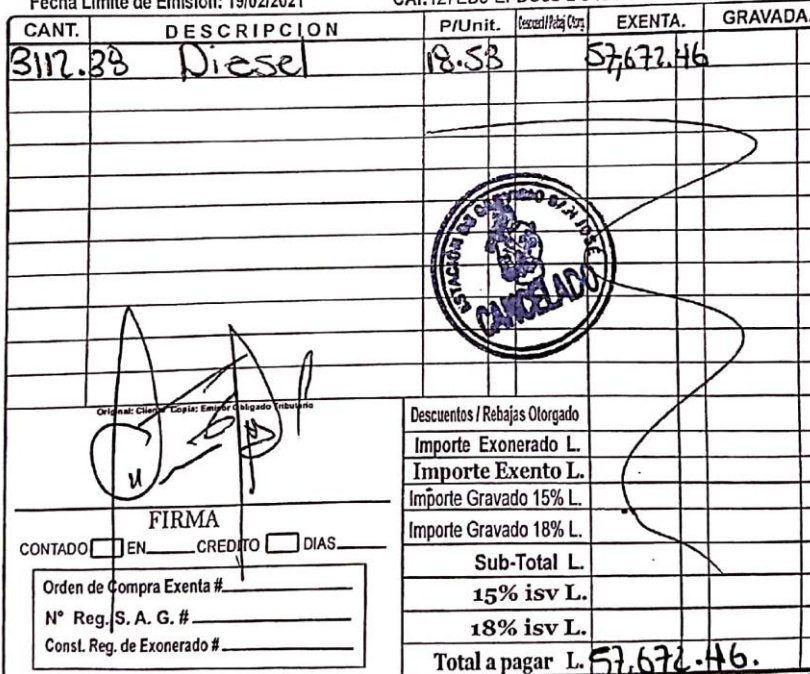 Fecha Límite de Emisión: 19/02/2021
CANT. DESCRIPCION P/Unit. EXENTA. GRAVADA.
3112.38 Diesel 18.53 57,672.46
ESTACIÓN DE SERVICIO SAN JOSÉ
CANCELADO
Original: Cliente Copia: Emisor Obligado Tributario
FIRMA
CONTADO EN CREDITO DIAS
Orden de Compra Exenta #
N° Reg. S. A. G. #
Const. Reg. de Exonerado #
Descuentos / Rebajas Otorgado
Importe Exonerado L.
Importe Exento L.
Importe Gravado 15% L.
Importe Gravado 18% L.
Sub-Total L.
15% isv L.
18% isv L.
Total a pagar L. 57,672.46.